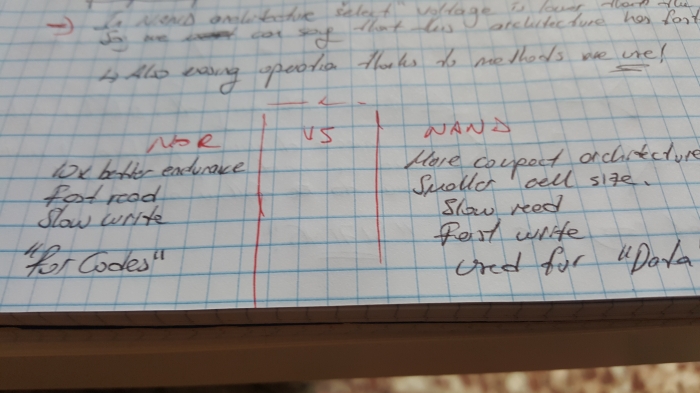 In NAND architecture select voltage is lower than the
So we can say that this architecture has fast
Also erasing operation thanks to methods we use!
NOR VS NAND
10x better endurance
Fast read
Slow write
"for Codes"
More compact architecture
Smaller cell size.
Slow read
Fast write
Used for "Data